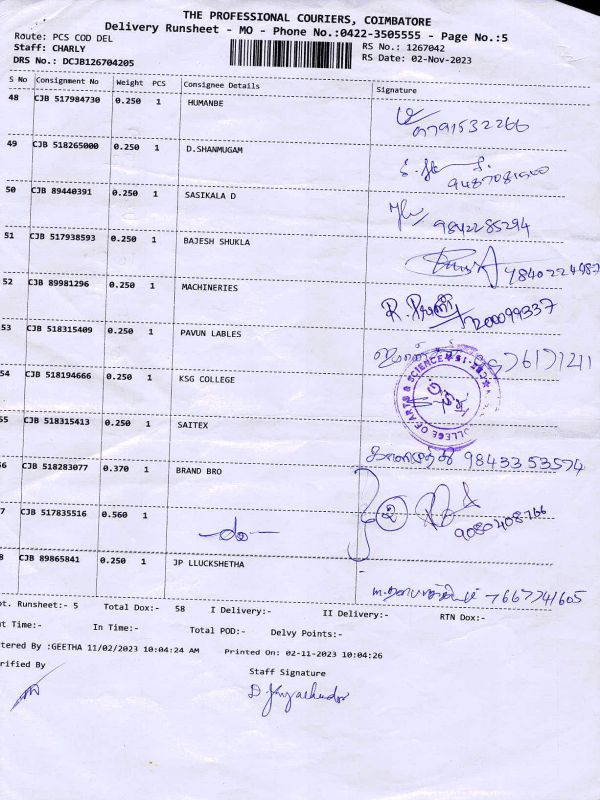 THE PROFESSIONAL COURIERS, COIMBATORE
Delivery Runsheet - MO - Phone No.:0422-3505555 - Page No.:5
Route: PCS COD DEL
RS No.: 1267042
Staff: CHARLY
RS Date: 02-Nov-2023
DRS No.: DCJB126704205
S No Consignment No Weight PCS Consignee Details Signature
48 CJB 517984730 0.250 1 HUMANBE
9791532266
49 CJB 518265000 0.250 1 D.SHANMUGAM
50 CJB 89440391 0.250 1 SASIKALA D
9842285294
51 CJB 517938593 0.250 1 BAJESH SHUKLA
52 CJB 89981296 0.250 1 MACHINERIES
53 CJB 518315409 0.250 1 PAVUN LABLES
54 CJB 518194666 0.250 1 KSG COLLEGE
COLLEGE OF ARTS & SCIENCE
55 CJB 518315413 0.250 1 SAITEX
9843353574
56 CJB 518283077 0.370 1 BRAND BRO
9080408766
7 CJB 517835516 0.560 1
8 CJB 89865841 0.250 1 JP LLUCKSHETHA
7667741605
ot. Runsheet:- 5 Total Dox:- 58 I Delivery:- II Delivery:- RTN Dox:-
ut Time:- In Time:- Total POD:- Delvy Points:-
tered By :GEETHA 11/02/2023 10:04:24 AM Printed On: 02-11-2023 10:04:26
rified By
Staff Signature